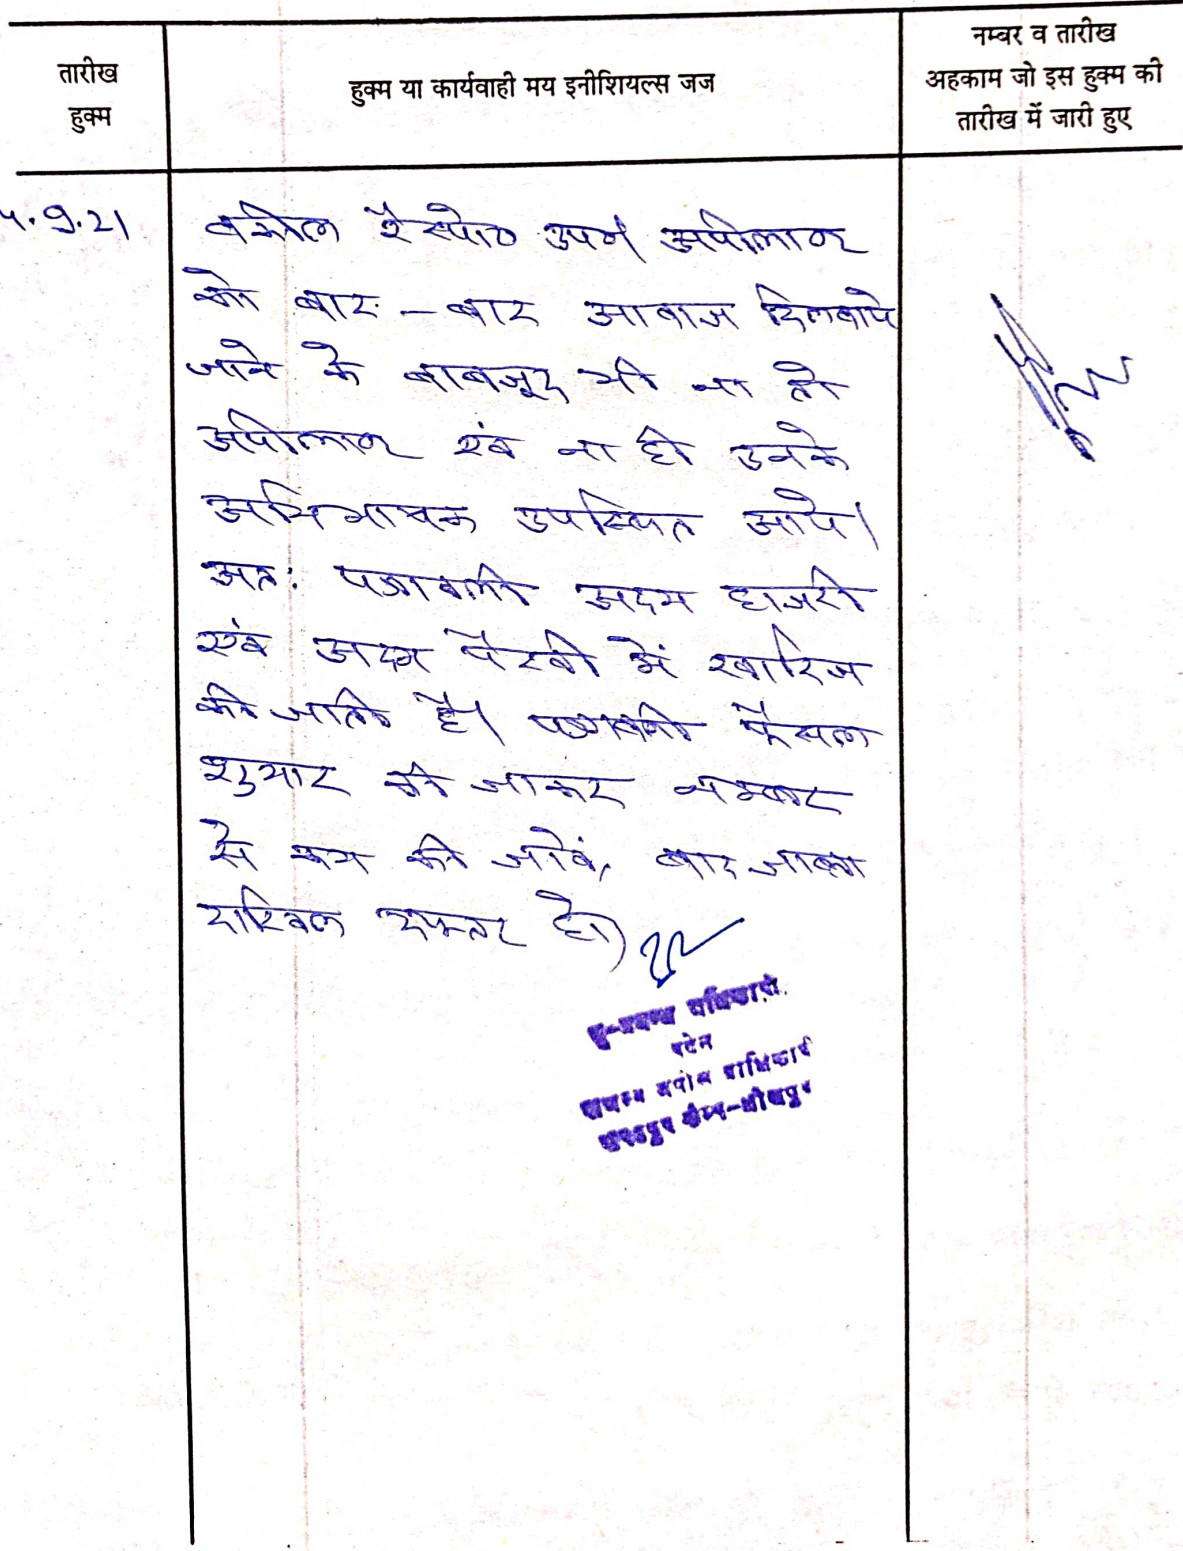 तारीख
हुक्म
हुक्म या कार्यवाही मय इनीशियल्स जज
नम्बर व तारीख
अहकाम जो इस हुक्म की
तारीख में जारी हुए
9.21
वकील रैस्पो० उप०। अपीलान्ट
को बार-बार आवाज दिलवाये
जाने के बावजूद भी ना तो
अपीलान्ट एंव ना ही उनके
अभिभाषक उपस्थित आये।
अतः पत्रावली अदम हाजरी
एंव अदम पैरवी में खारिज
की जाती है। पत्रावली फैसल
शुमार की जाकर नम्बर
से कम की जावें, बाद जाब्ता
दाखिल दफ्तर हो।
भू-प्रबन्ध अधिकारी
पदेन